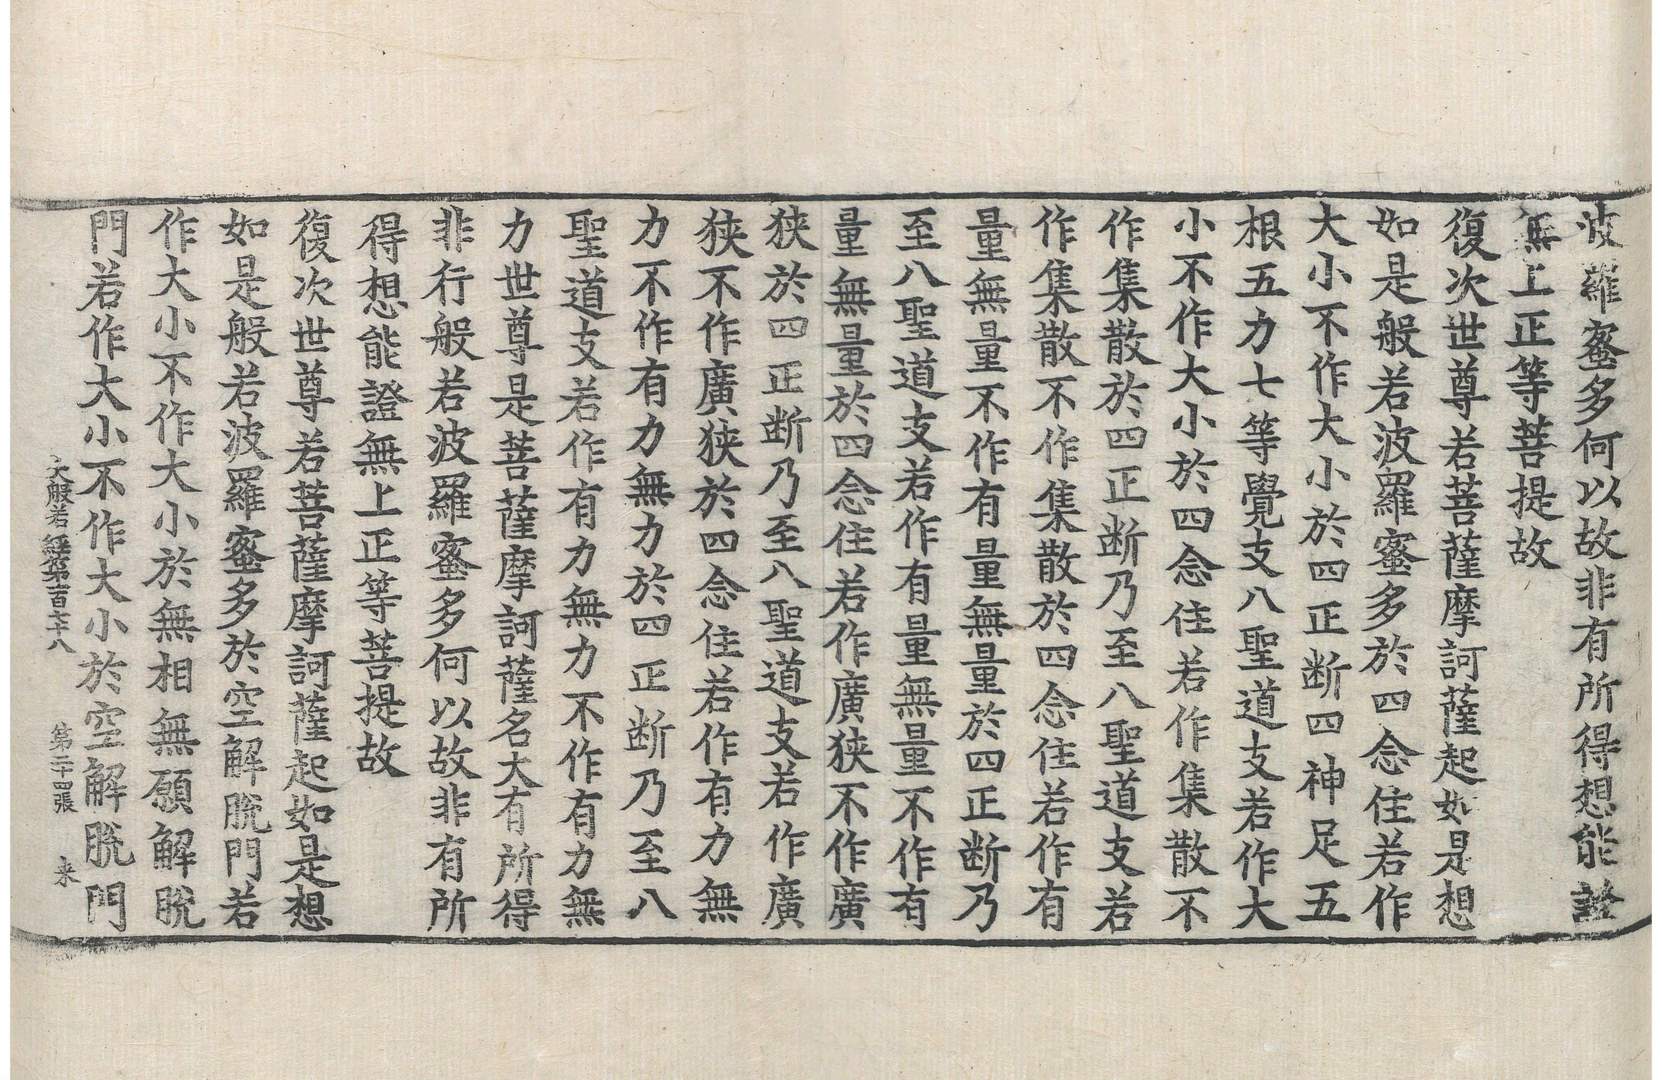 波羅蜜多何以故非有所得想能證
無上正等菩提故
復次世尊若菩薩摩訶薩起如是想
如是般若波羅蜜多於四念住若作
大小不作大小於四正断四神足五
根五力七等覺支八聖道支若作大
小不作大小於四念住若作集散不
作集散於四正断乃至八聖道支若
作集散不作集散於四念住若作有
量無量不作有量無量於四正断乃
至八聖道支若作有量無量不作有
量無量於四念住若作廣狹不作廣
狹於四正断乃至八聖道支若作廣
狹不作廣狹於四念住若作有力無
力不作有力無力於四正断乃至八
聖道支若作有力無力不作有力無
力世尊是菩薩摩訶薩名大有所得
非行般若波羅蜜多何以故非有所
得想能證無上正等菩提故
復次世尊若菩薩摩訶薩起如是想
如是般若波羅蜜多於空解脫門若
作大小不作大小於無相無願解脫
門若作大小不作大小於空解脫門
大般若經第一百六十八 第二十四張 来